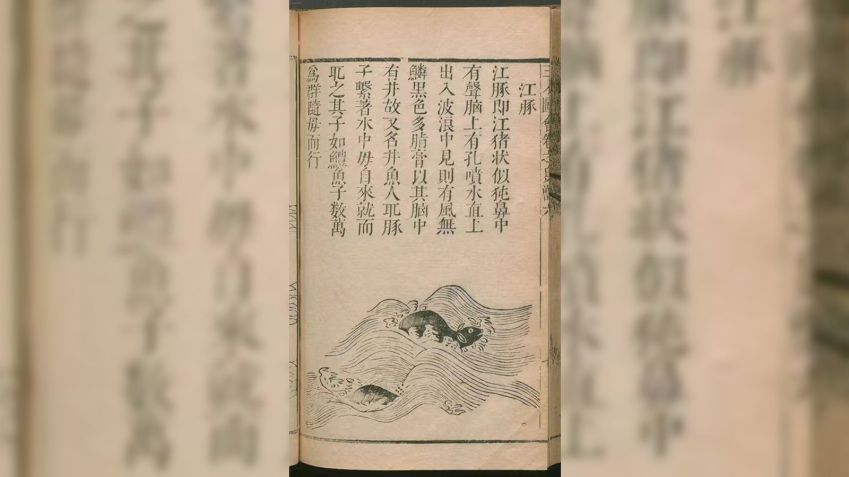 江豚
江豚即江猪状似㹠鼻中
有聲腦上有孔噴水直上
出入波浪中見則有風無
鱗黑色多脂膏以其腦中
有井故又名井魚人取豚
子繫著水中母自來就而
取之其子如鱧魚子數萬
為群隨母而行